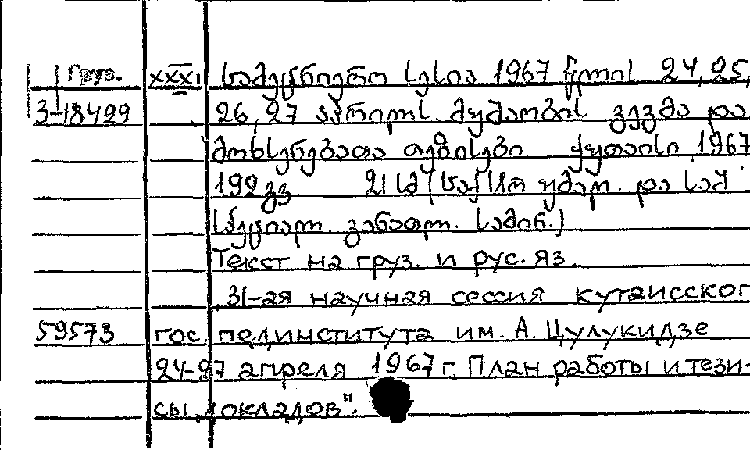 Груз. XXXI სამეცნიერო სესია 1967 წლის 24, 25,
3-18499 26, 27 აპრილს მუშაობის გეგმა და
მოხსენებათა თეზისები ქუთაისი 1967
199 გვ 21 სმ (საქ სსრ უმაღ. და საშ.
სპეციალ. განათლ. სამინ.)
Текст на груз. и рус. яз.
31-ая научная сессия кутаисског
59573 гос. пединститута им. А. Цулукидзе
24-27 апреля 1967 г. План работы и тези-
сы докладов".